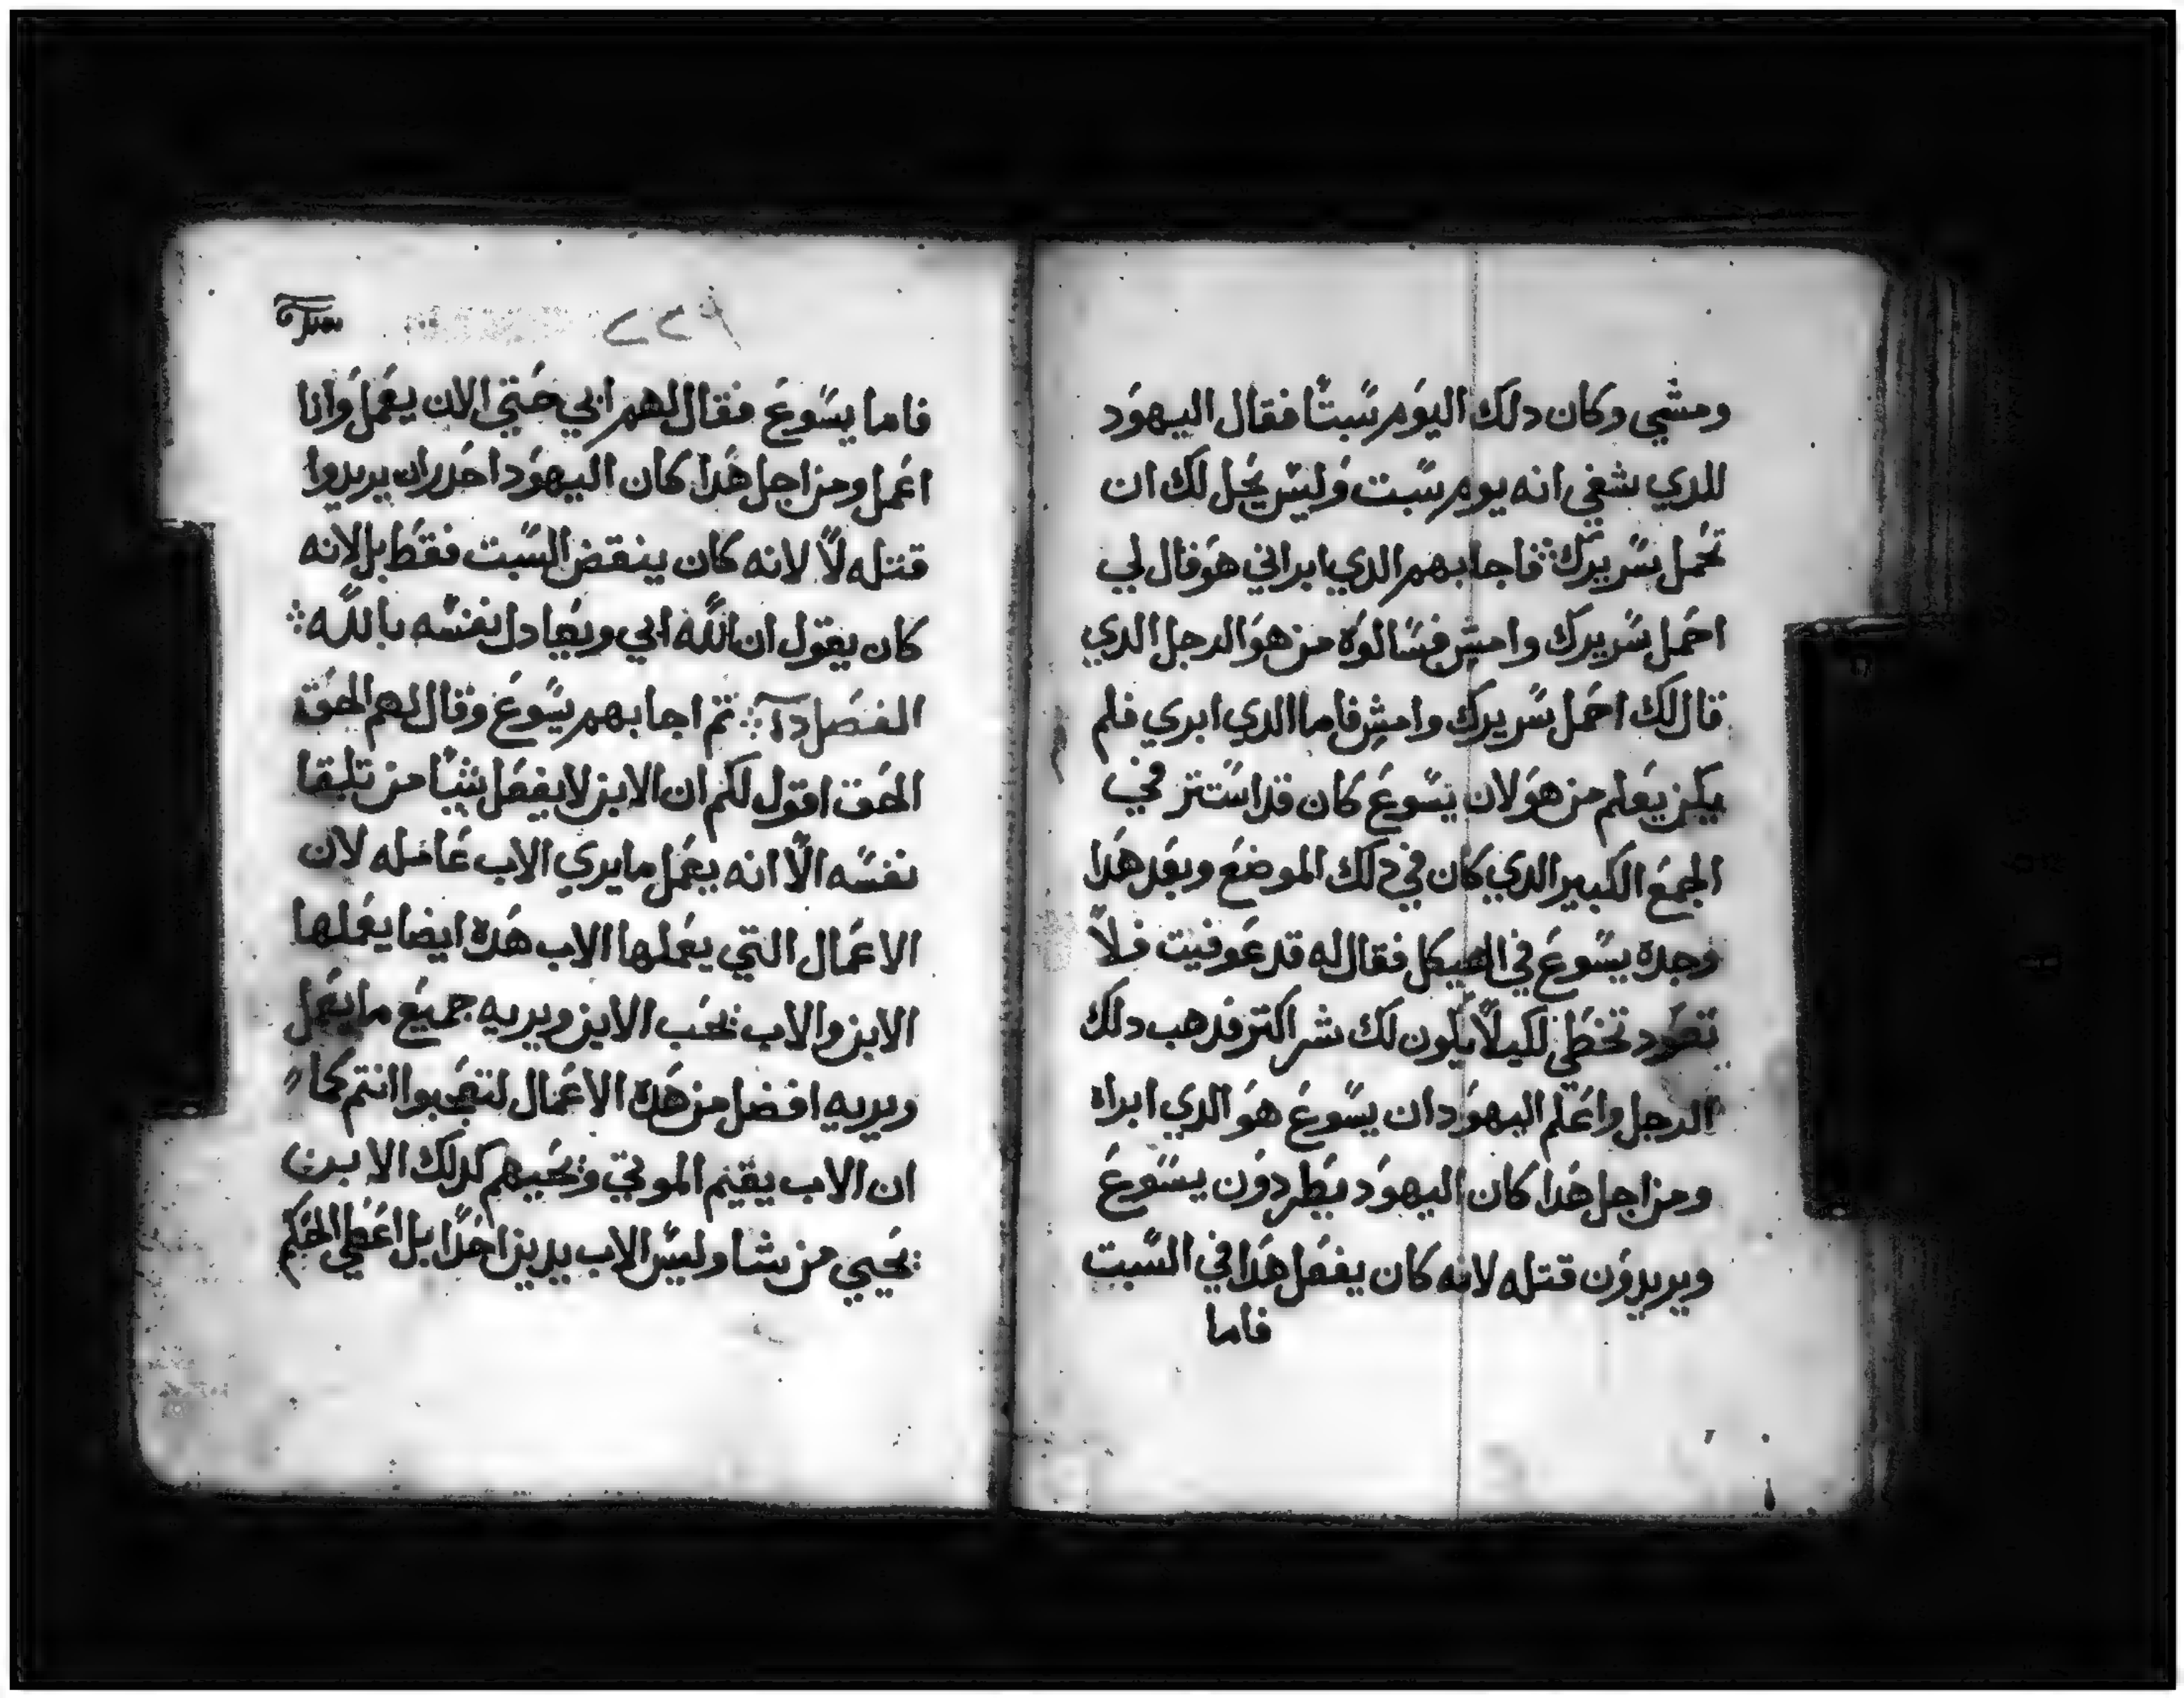 ومشي وكان دلك اليوم سبتا فقال اليهود
للدي شفي انه يوم سبت وليس يحل لك ان
تحمل سريرك فاجابهم الدي ابراني هو قال لي
احمل سريرك وامش فسالوه من هو الرجل الدي
قال لك احمل سريرك وامش فاما الدي ابري فلم
يكن يعلم من هو لان يسوع كان قد استتر في
الجمع الكبير الدي كان في دلك الموضع وبعد هدا
وجده يسوع في الهيكل فقال له قد عوفيت فلا
تعود تخطي لكيلا يكون لك شر اكتر فدهب دلك
الرجل واعلم اليهود ان يسوع هو الدي ابراه
ومن اجل هدا كان اليهود يطردون يسوع
ويريدون قتله لانه كان يفعل هدا في السبت
فاما
فاما يسوع فقال لهم ابي حتي الان يعمل وانا
اعمل ومن اجل هدا كان اليهود احدران يريدوا
قتله لا لانه كان ينقض السبت فقط بل لانه
كان يقول ان الله ابي ويعادل نفسه بالله
الفصل تم اجابهم يسوع وقال لهم الحق
الحق اقول لكم ان الابن لا يفعل شيا من تلقا
نفسه الا انه يعمل ما يري الاب عامله لان
الاعمال التي يعملها الاب هده ايضا يعملها
الابن والاب يحب الابن ويريه جميع ما يعمل
ويريه افضل من هده الاعمال لتعجبوا انتم كما
ان الاب يقيم الموتي ويحييهم كدلك الابن
يحيي من يشا وليس الاب يدين احدا بل اعطي الحكم